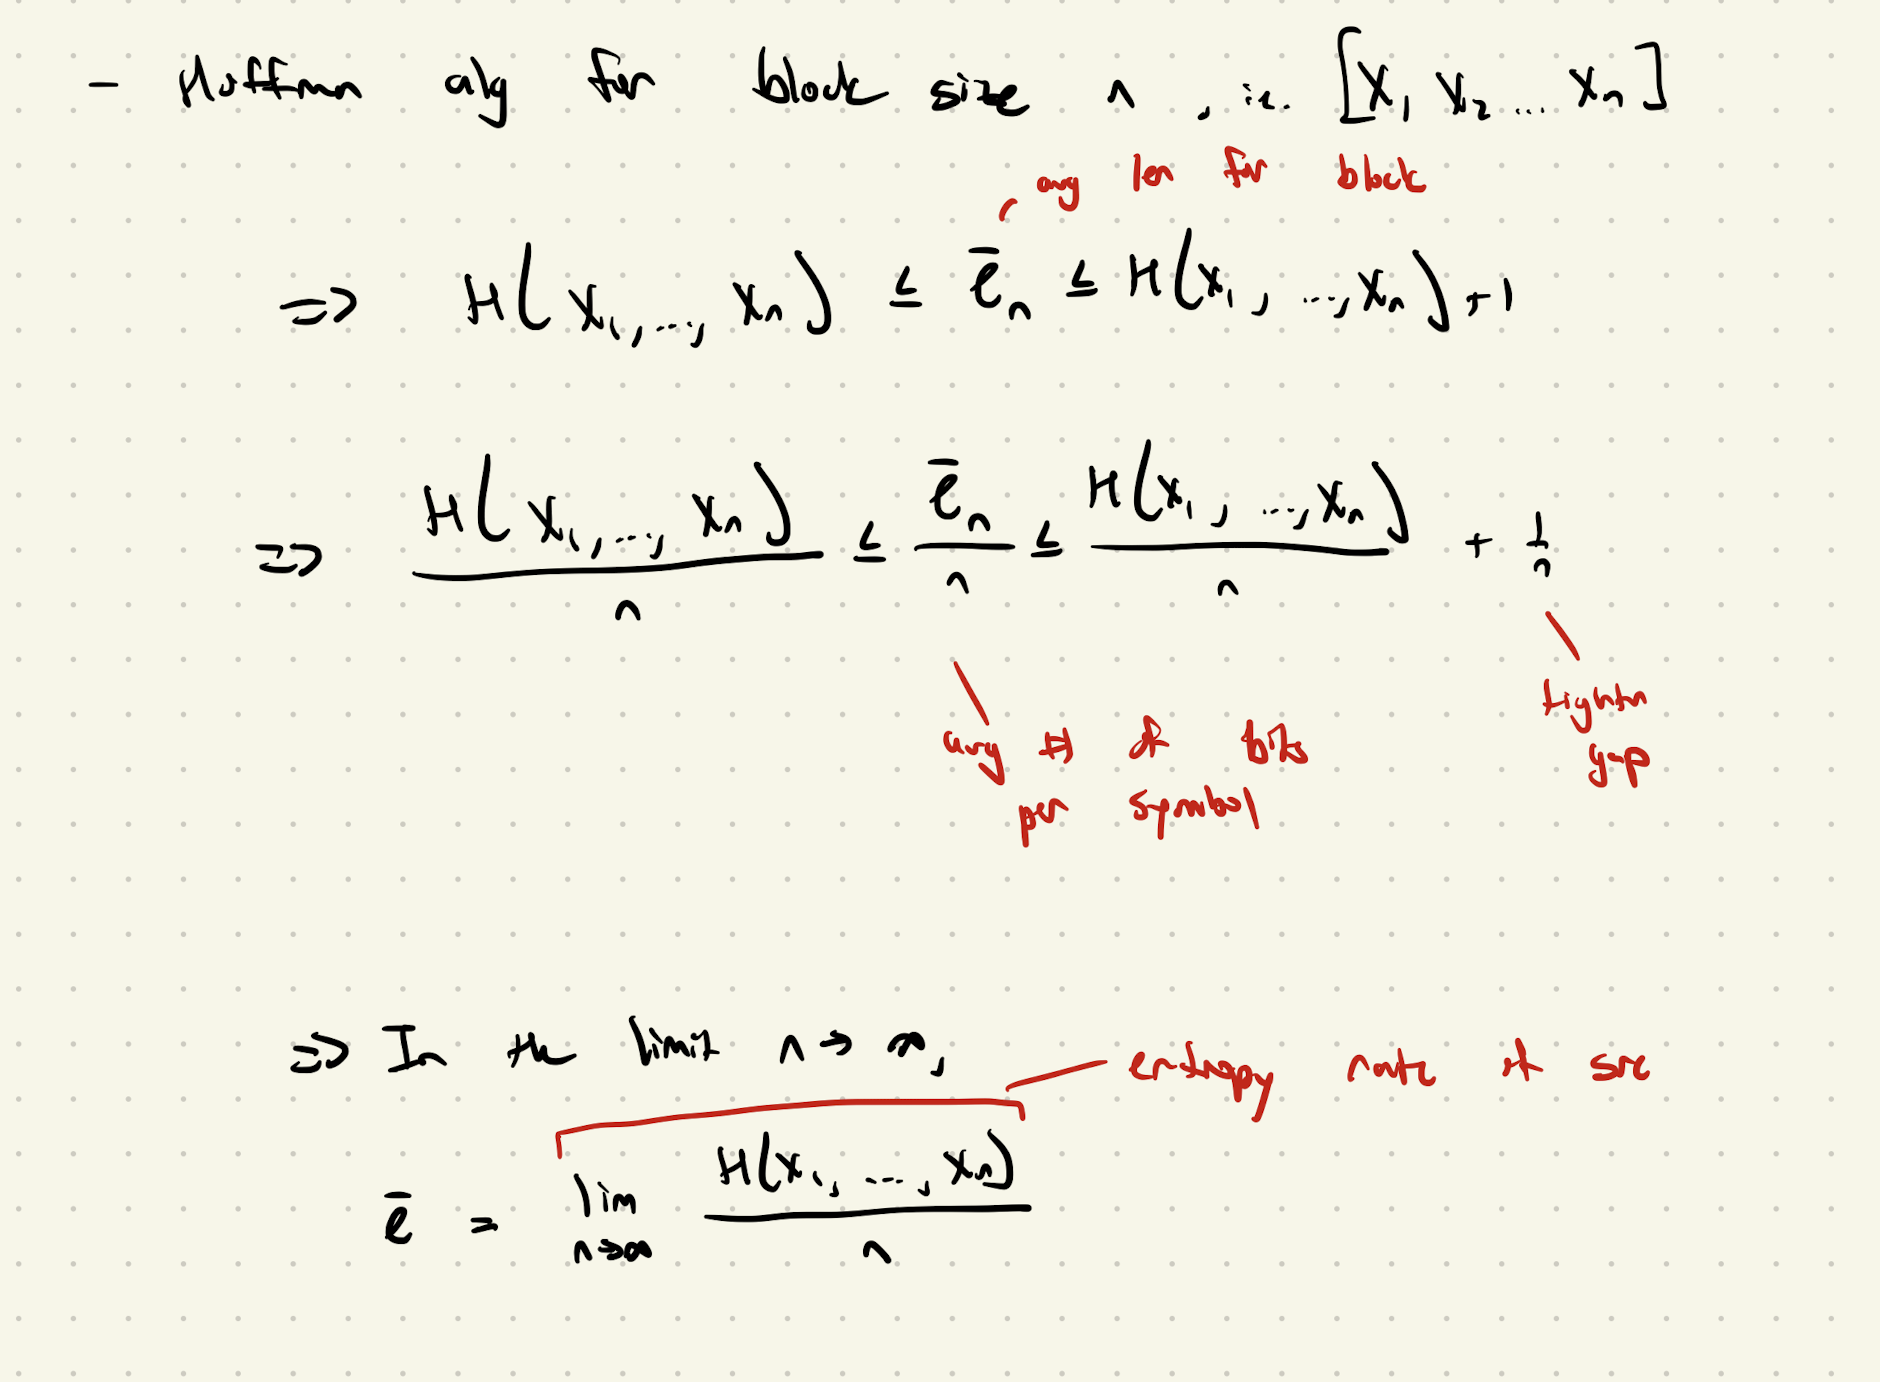 - Huffman alg for block size n, ie. [X₁ X₂ ... Xₙ]
avg len for block
=> H(X₁, ..., Xₙ) ≤ ℓ̄ₙ ≤ H(X₁, ..., Xₙ) + 1
=> H(X₁, ..., Xₙ) / n ≤ ℓ̄ₙ / n ≤ H(X₁, ..., Xₙ) / n + 1/n
tightn
avg # of bits
gap
per symbol
=> In the limit n → ∞,
entropy rate of src
ℓ̄ = lim n→∞ H(X₁, ..., Xₙ) / n